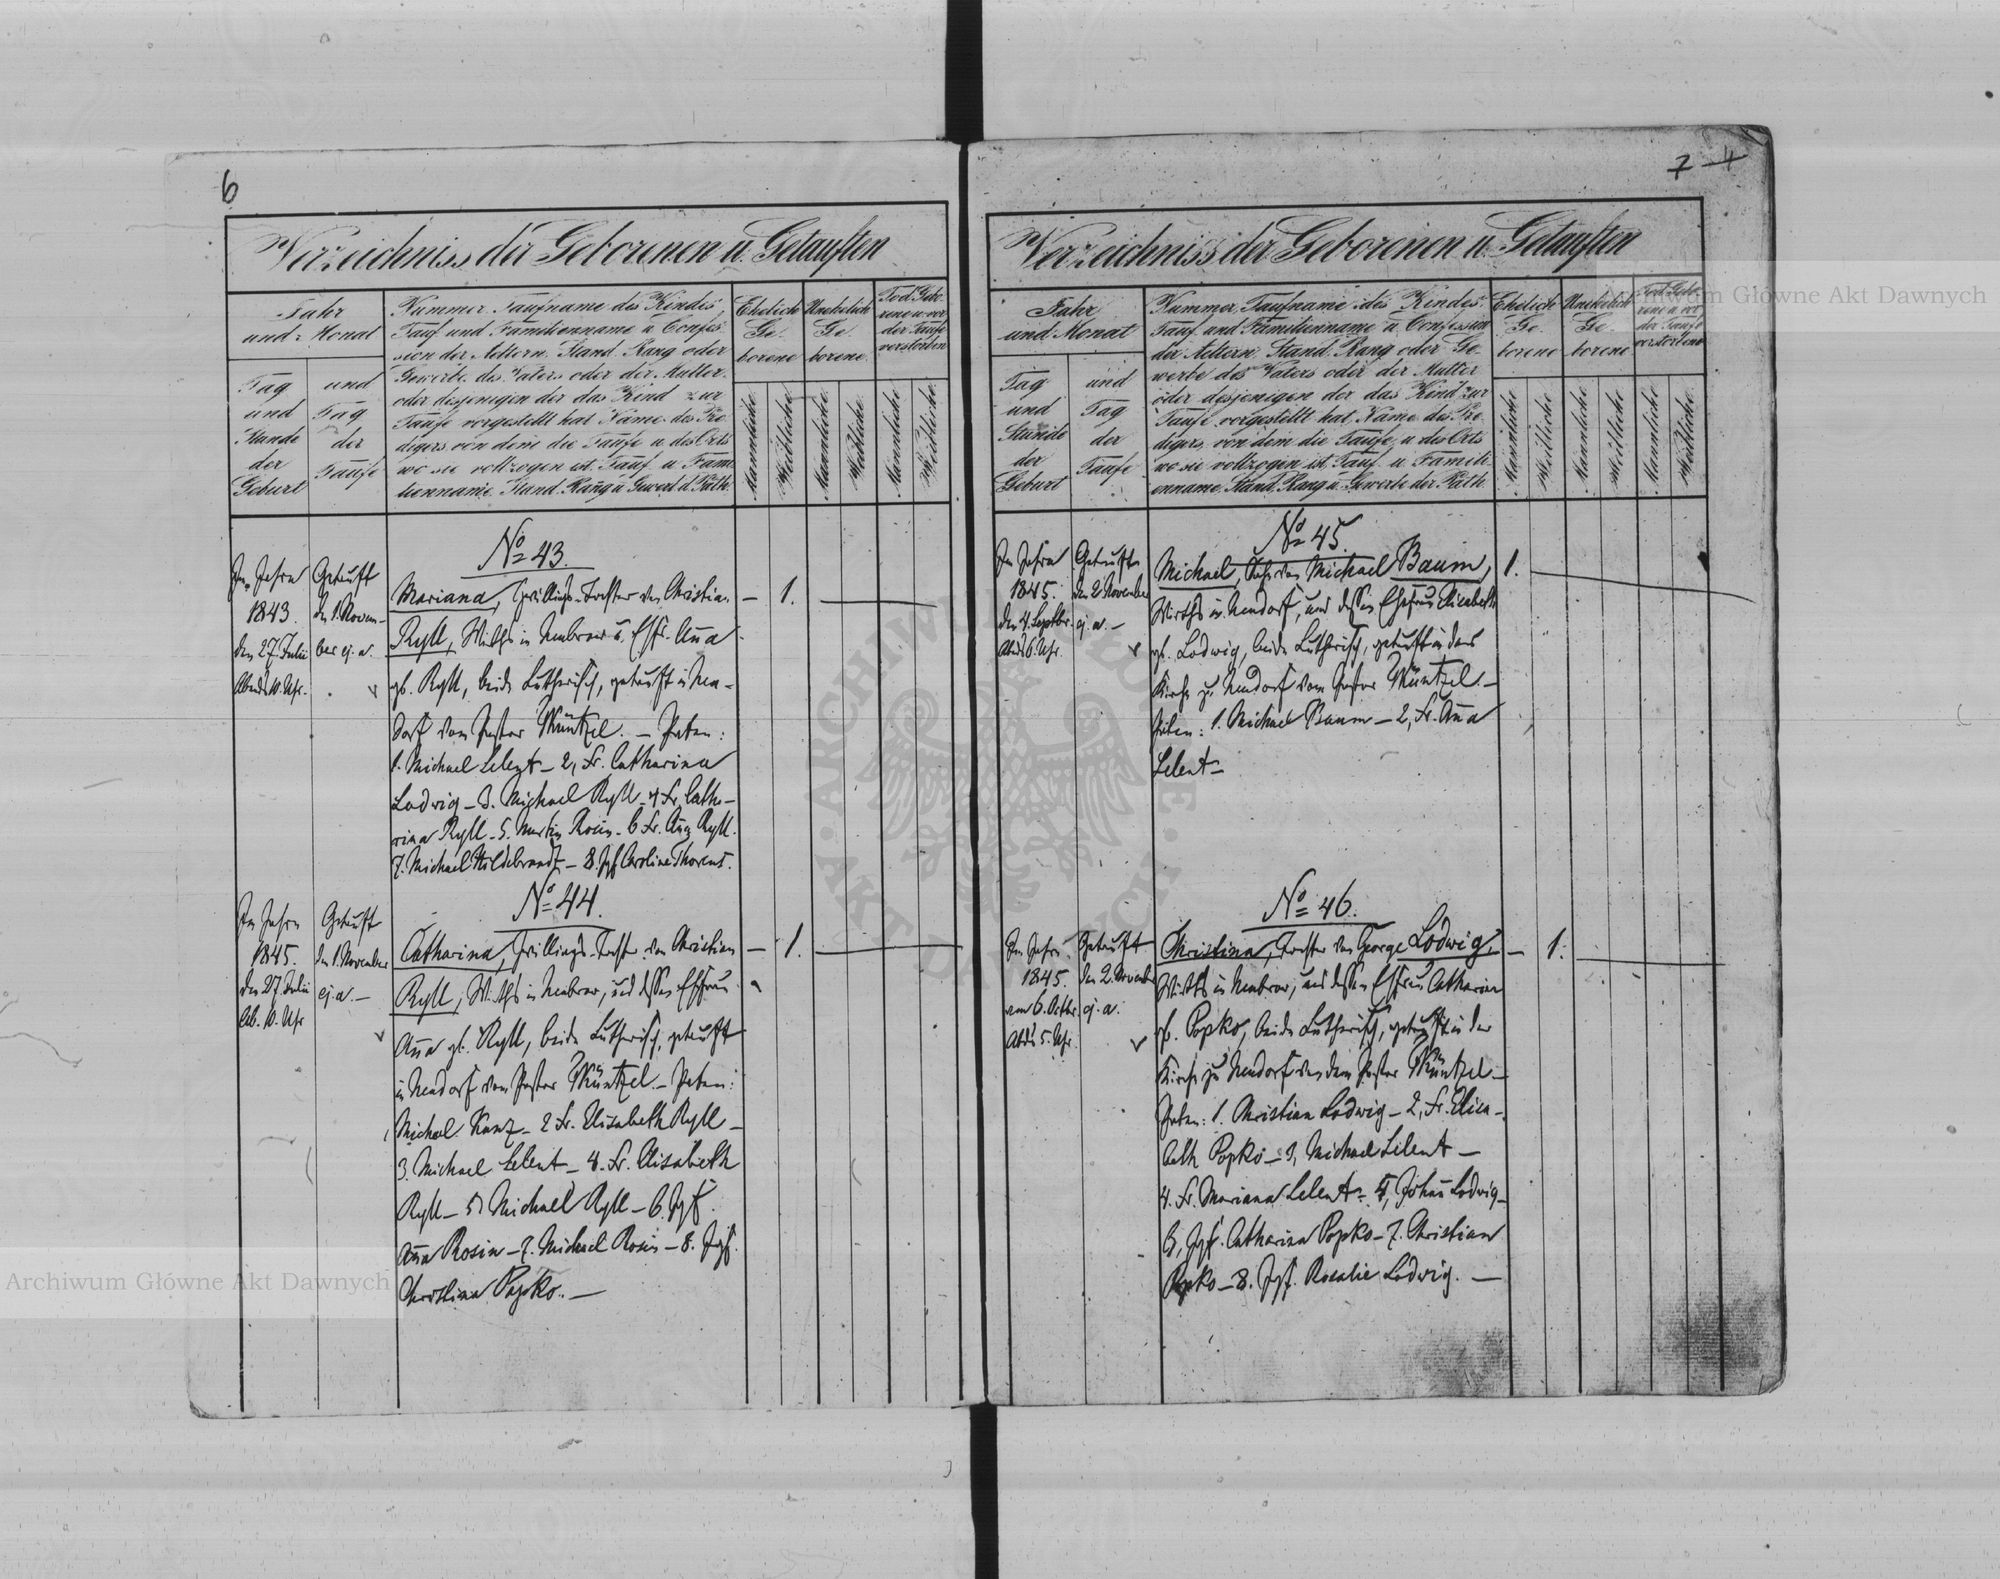 6
Verzeichniss der Geborenen u. Getauften
Jahr
und Monat
Tag
und
Stunde
der
Geburt
und
Tag
der
Taufe
Nummer, Taufname des Kindes,
Tauf und Familienname u Confes-
sion der Aeltern. Stand. Rang oder
Gewerbe des Vaters oder der Mutter.
oder desjenigen der das Kind zur
Taufe vorgestellt hat. Name des Pre-
digers von dem die Taufe u. des Orts
wo sie vollzogen ist. Tauf u Fami-
lienname. Stand. Rang u Gewerb d. Path.
Ehelich
Ge-
borene
Unehelich
Ge-
borene
Tod Gebo-
rene u. vor
der Taufe
verstorben
Männliche
Weibliche
Männliche
Weibliche
Männliche
Weibliche
No 43.
Im Jahre
1843.
den 27 Julii
Abends 10. Uhr.
Getauft
den 1. Novem-
ber ej. a.
Mariana, Zwillings-Tochter von Christian
Ryll, Wirths in Neubrow u. Ehfr. Anna
gb. Ryll, beide Lutherisch, getauft in Neu-
dorf vom Pastor Müntzel. – Paten:
1. Michael Lelent – 2, Fr. Catharina
Lodwig – 3. Michael Ryll – 4 Fr. Catha-
rina Ryll – 5. Martin Rosin – 6 Fr. Anna Ryll.
7. Michael Hildebrandt – 8. Jgf Caroline Thorent.
– 1. –
No 44.
Im Jahre
1845.
den 27 Julii
Ab. 10. Uhr
Getauft
den 1. November
ej. a. –
Catharina, Zwillings-Tocht. von Christian
Ryll, Wirths in Neubrow, und dessen Ehefrau
Anna gb. Ryll, beide Lutherisch, getauft
in Neudorf vom Pastor Müntzel. – Paten:
1 Michael Kunz – 2 Fr. Elisabeth Ryll –
3. Michael Lelent – 4. Fr. Elisabeth
Ryll – 5, Michael Ryll – 6. Jgf.
Anna Rosin – 7. Michael Rosin – 8. Jgf.
Christina Popko. –
– 1. –
7 4
Verzeichniss der Geborenen u. Getauften
Jahr
und Monat
Tag
und
Stunde
der
Geburt
und
Tag
der
Taufe
Nummer, Taufname des Kindes
Tauf und Familienname u Confession
der Aeltern. Stand. Rang oder Ge-
werbe des Vaters oder der Mutter
oder desjenigen der das Kind zur
Taufe vorgestellt hat. Name des Pre-
digers von dem die Taufe u. des Orts
wo sie vollzogen ist. Tauf u. Famili-
enname, Stand, Rang u. Gewerbe der Path.
Ehelich
Ge-
borene
Unehelich
Ge-
borene
Tod Gebo-
rene u. vor
der Taufe
verstorbene
Männliche
Weibliche
Männliche
Weibliche
Männliche
Weibliche
No 45.
Im Jahre
1845.
den 4. Septbr.
Abds 6. Uhr.
Getauft
den 2 November
ej. a. –
Michael, Sohn von Michael Baum,
Wirths in Neudorf, und dessen Ehefrau Elisabeth
gb. Lodwig, beide Lutherisch, getauft in der
Kirche zu Neudorf vom Pastor Müntzel. –
Paten: 1. Michael Baum – 2, Fr. Anna
Lelent –
1. –
No 46.
Im Jahre
1845.
am 6. Octbr.
Abds 5. Uhr.
Getauft
den 2. November
ej. a.
Christina, Tochter von George Lodwig
Wirths in Neubrow, und dessen Ehefrau Catharina
gb. Popko, beide Lutherisch, getauft in der
Kirche zu Neudorf von dem Pastor Müntzel –
Paten: 1. Christian Lodwig – 2, Fr. Elisa-
beth Popko – 3, Michael Lelent –
4. Fr. Mariana Lelent – 5, Johann Lodwig –
6, Jgf. Catharina Popko – 7. Christian
Popko – 8. Jgf. Rosalie Lodwig. –
– 1. –
Archiwum Główne Akt Dawnych
Archiwum Główne Akt Dawnych